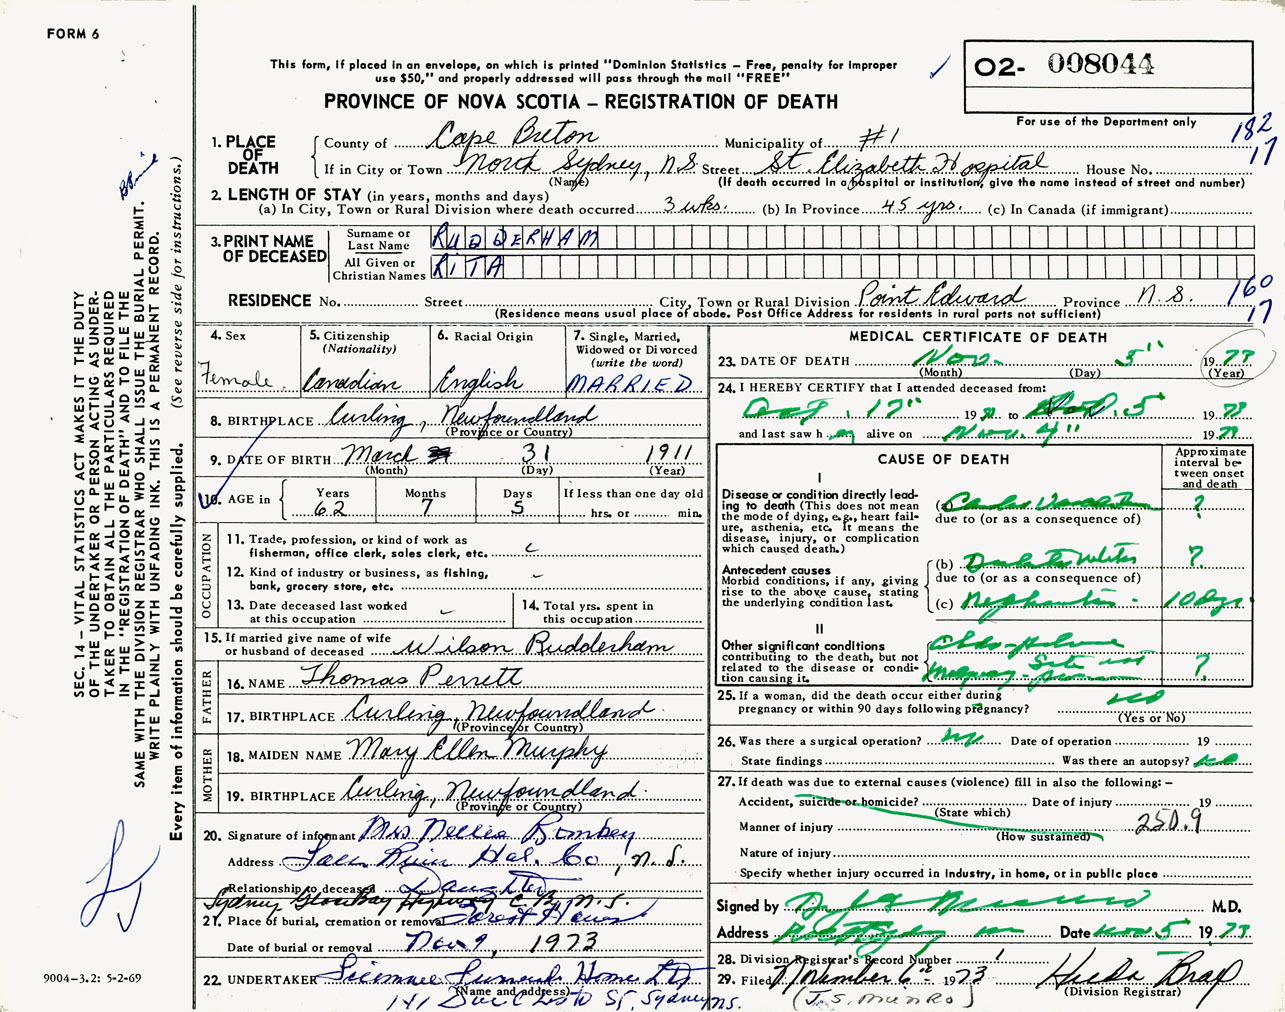 FORM 6
This form, if placed in an envelope, on which is printed "Dominion Statistics – Free, penalty for improper
use $50," and properly addressed will pass through the mail "FREE"
PROVINCE OF NOVA SCOTIA – REGISTRATION OF DEATH
O2- 008044
For use of the Department only
182
17
1. PLACE OF DEATH
County of Cape Breton Municipality of #1
If in City or Town North Sydney, N.S. Street St. Elizabeth Hospital House No.
(Name) (If death occurred in a hospital or institution, give the name instead of street and number)
2. LENGTH OF STAY (in years, months and days)
(a) In City, Town or Rural Division where death occurred 3 wks. (b) In Province 45 yrs. (c) In Canada (if immigrant)
3. PRINT NAME OF DECEASED
Surname or Last Name RUDDERHAM
All Given or Christian Names RITA
RESIDENCE No. Street City, Town or Rural Division Point Edward Province N.S.
160
17
(Residence means usual place of abode. Post Office Address for residents in rural parts not sufficient)
4. Sex
Female
5. Citizenship
(Nationality)
Canadian
6. Racial Origin
English
7. Single, Married,
Widowed or Divorced
(write the word)
MARRIED
8. BIRTHPLACE Curling, Newfoundland
(Province or Country)
9. DATE OF BIRTH March 31 1911
(Month) (Day) (Year)
10. AGE in Years 62 Months 7 Days 5 If less than one day old
hrs. or min.
OCCUPATION
11. Trade, profession, or kind of work as
fisherman, office clerk, sales clerk, etc.
12. Kind of industry or business, as fishing,
bank, grocery store, etc.
13. Date deceased last worked
at this occupation
14. Total yrs. spent in
this occupation
15. If married give name of wife
or husband of deceased Wilson Rudderham
FATHER
16. NAME Thomas Perrett
17. BIRTHPLACE Curling, Newfoundland
(Province or Country)
MOTHER
18. MAIDEN NAME Mary Ellen Murphy
19. BIRTHPLACE Curling, Newfoundland.
(Province or Country)
20. Signature of informant Mrs Nellie Bombay
Address Hal. Co, N.S.
Relationship to deceased Daughter
Sydney Glace Bay Highway C.B., N.S.
21. Place of burial, cremation or removal Forest Haven
Date of burial or removal Nov 9, 1973
22. UNDERTAKER Funeral Home Ltd
(Name and address)
141 St, Sydney N.S.
MEDICAL CERTIFICATE OF DEATH
23. DATE OF DEATH Nov. 5" 1973
(Month) (Day) (Year)
24. I HEREBY CERTIFY that I attended deceased from:
17" 19 to Nov. 5 1973
and last saw h alive on Nov. 4" 1973
CAUSE OF DEATH
Approximate
interval be-
tween onset
and death
I
Disease or condition directly lead-
ing to death (This does not mean
the mode of dying, e.g., heart fail-
ure, asthenia, etc. It means the
disease, injury, or complication
which caused death.)
(a) ?
due to (or as a consequence of)
Antecedent causes
Morbid conditions, if any, giving
rise to the above cause, stating
the underlying condition last.
(b) ?
due to (or as a consequence of)
(c) 10 dys.
II
Other significant conditions
contributing to the death, but not
related to the disease or condi-
tion causing it.
?
25. If a woman, did the death occur either during
pregnancy or within 90 days following pregnancy? no
(Yes or No)
26. Was there a surgical operation? no Date of operation 19
State findings Was there an autopsy? no
27. If death was due to external causes (violence) fill in also the following: –
Accident, suicide or homicide? Date of injury 19
(State which)
Manner of injury 250.9
(How sustained)
Nature of injury
Specify whether injury occurred in industry, in home, or in public place
Signed by M.D.
Address Date Nov 5 1973
28. Division Registrar's Record Number
29. Filed November 6th 1973 Hilda Bray
(Division Registrar)
(J. S. Munro)
SEC. 14 – VITAL STATISTICS ACT MAKES IT THE DUTY
OF THE UNDERTAKER OR PERSON ACTING AS UNDER-
TAKER TO OBTAIN ALL THE PARTICULARS REQUIRED
IN THE "REGISTRATION OF DEATH" AND TO FILE THE
SAME WITH THE DIVISION REGISTRAR WHO SHALL ISSUE THE BURIAL PERMIT.
WRITE PLAINLY WITH UNFADING INK. THIS IS A PERMANENT RECORD.
Every item of information should be carefully supplied. (See reverse side for instructions.)
9004–3.2: 5-2-69